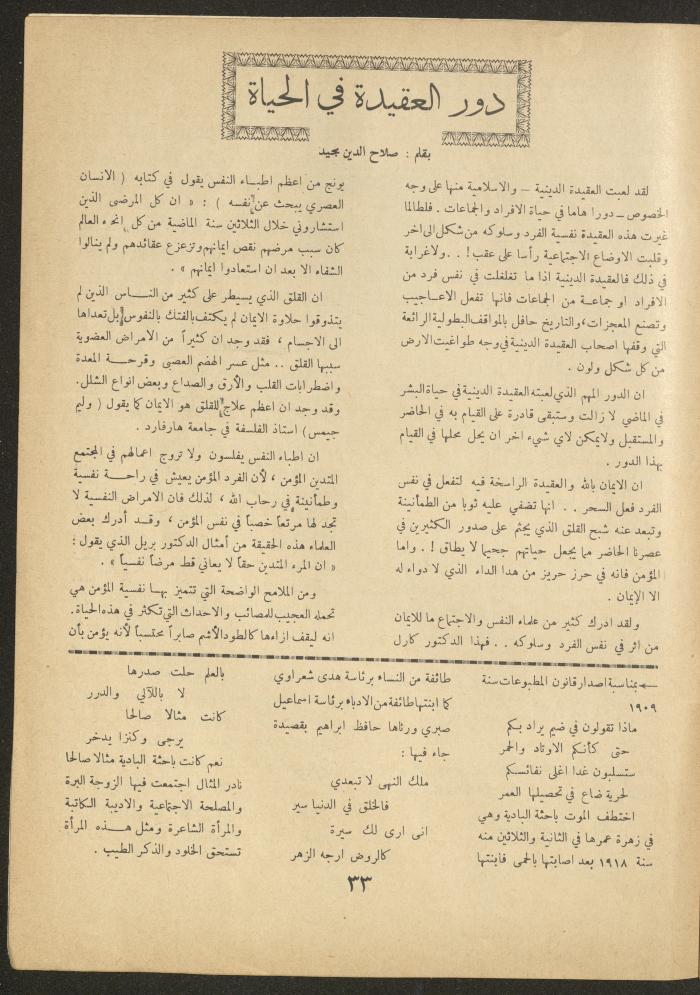 دور العقيدة في الحياة
بقلم : صلاح الدين مجيد
لقد لعبت العقيدة الدينية – والاسلامية منها على وجه
الخصوص – دورا هاما في حياة الافراد والجماعات . فلطالما
غيرت هذه العقيدة نفسية الفرد وسلوكه من شكل الى اخر
وقلبت الاوضاع الاجتماعية رأسا على عقب ! . . ولاغرابة
في ذلك فالعقيدة الدينية اذا ما تغلغلت في نفس فرد من
الافراد او جماعة من الجماعات فانها تفعل الاعاجيب
وتصنع المعجزات ، والتاريخ حافل بالمواقف البطولية الرائعة
التي وقفها اصحاب العقيدة الدينية في وجه طواغيت الارض
من كل شكل ولون .
ان الدور المهم الذي لعبته العقيدة الدينية في حياة البشر
في الماضي لا زالت وستبقى قادرة على القيام به في الحاضر
والمستقبل ولايمكن لاي شيء اخر ان يحل محلها في القيام
بهذا الدور .
ان الايمان بالله والعقيدة الراسخة فيه لتفعل في نفس
الفرد فعل السحر . . انها تضفي عليه ثوبا من الطمأنينة
وتبعد عنه شبح القلق الذي يجثم على صدور الكثيرين في
عصرنا الحاضر مما يجعل حياتهم جحيما لا يطاق ! . واما
المؤمن فانه في حرز حريز من هذا الداء الذي لا دواء له
الا الإيمان .
ولقد ادرك كثير من علماء النفس والاجتماع ما للايمان
من اثر في نفس الفرد وسلوكه . . فهذا الدكتور كارل
يونج من اعظم اطباء النفس يقول في كتابه ( الانسان
العصري يبحث عن نفسه ) : « ان كل المرضى الذين
استشاروني خلال الثلاثين سنة الماضية من كل انحاء العالم
كان سبب مرضهم نقص ايمانهم وتزعزع عقائدهم ولم ينالوا
الشفاء الا بعد ان استعادوا ايمانهم » .
ان القلق الذي يسيطر على كثير من الناس الذين لم
يتذوقوا حلاوة الايمان لم يكتف بالفتك بالنفوس بل تعداها
الى الاجسام ، فقد وجد ان كثيراً من الأمراض العضوية
سببها القلق .. مثل عسر الهضم العصبى وقرحة المعدة
واضطرابات القلب والأرق والصداع وبعض انواع الشلل.
وقد وجد ان اعظم علاج للقلق هو الايمان كما يقول ( وليم
جيمس ) استاذ الفلسفة في جامعة هارفارد .
ان اطباء النفس يفلسون ولا تروج اعمالهم في المجتمع
المتدين المؤمن ، لأن الفرد المؤمن يعيش في راحة نفسية
وطمأنينة في رحاب الله ، لذلك فان الامراض النفسية لا
تجد لها مرتعاً خصباً في نفس المؤمن ، وقد أدرك بعض
العلماء هذه الحقيقة من أمثال الدكتور بريل الذي يقول :
« ان المرء المتدين حقاً لا يعاني قط مرضاً نفسياً » .
ومن الملامح الواضحة التي تتميز بها نفسية المؤمن هي
تحمله العجيب للمصائب والاحداث التي تكثر في هذه الحياة.
انه ليقف ازاءها كالطود الأشم صابراً محتسباً لأنه يؤمن بأن
← بمناسبة اصدار قانون المطبوعات سنة
١٩٠٩
ماذا تقولون في ضيم يراد بكم
حتى كأنكم الاوتاد والحمر
ستسلبون غدا اغلى نفائسكم
لحرية ضاع في تحصيلها العمر
اختطف الموت باحثة البادية وهي
في زهرة عمرها في الثانية والثلاثين منه
سنة ١٩١٨ بعد اصابتها بالحمى فابنتها
طائفة من النساء برئاسة هدى شعراوي
كما ابنتها طائفة من الادباء برئاسة اسماعيل
صبري ورثاها حافظ ابراهيم بقصيدة
جاء فيها :
ملك النهى لا تبعدي
فالخلق في الدنيا سير
انى ارى لك سيرة
كالروض ارجه الزهر
بالعلم حلت صدرها
لا باللآلي والدرر
كانت مثالا صالحا
يرجى وكنزا يدخر
نعم كانت باحثة البادية مثالا صالحا
نادر المثال اجتمعت فيها الزوجة البرة
والمصلحة الاجتماعية والاديبة الكاتبة
والمرأة الشاعرة ومثل هذه المرأة
تستحق الخلود والذكر الطيب .
٣٣